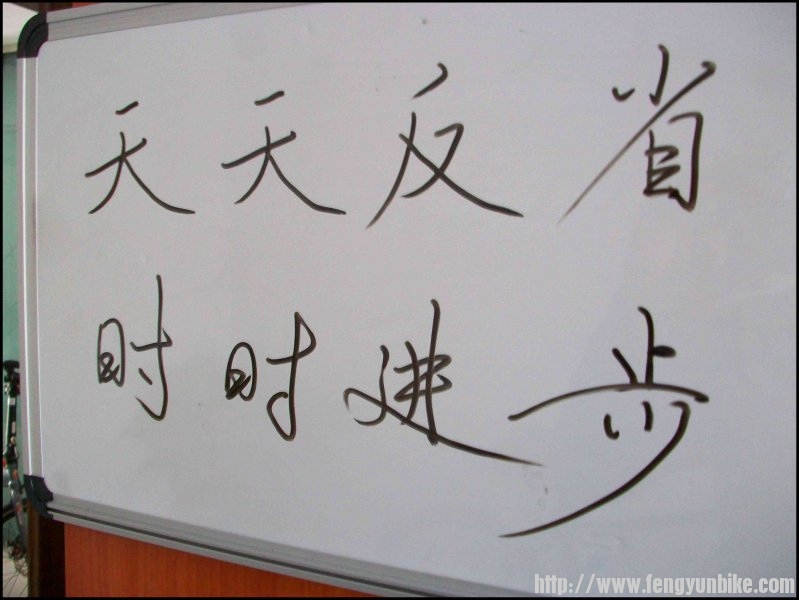 天天反省
时时进步
http://www.fengyunbike.com